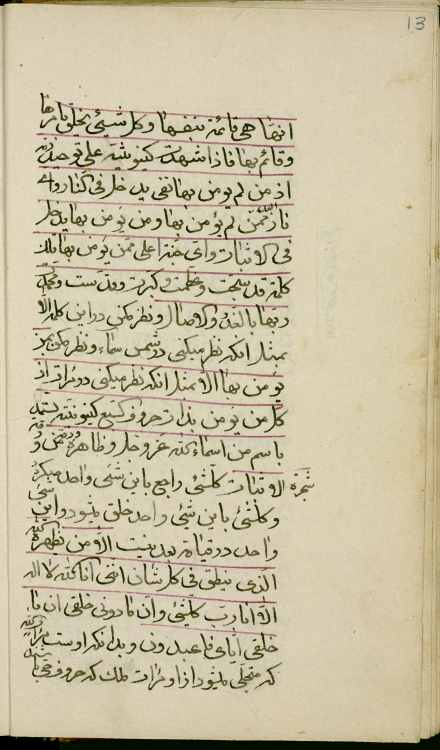 13
انها هی قائمة بنفسها و کل شیئ یخلق بامرها
و قائم بها فاذا شهدت کینونیته علی توحید
اذ من لم یؤمن بها نفی یدخل فی
نار فمن لم یؤمن بها و من یؤمن بها یدخل
فی الاثبات و ای علی ممن یؤمن بها بتلک
کلمة قد سبحت و عظمت و کبرت و قدست و مجدت
ربها بالغدو و الاصال و نظر مکن در این کلمه الا
بمثل انکه نظر میکنی در شمس سماء و نظر مکن بمن
یؤمن بها الا بمثل انکه نظر میکنی در مرات اذ
کل من یؤمن بذات حروف سبع کینونیته
باسم من اسماء الله عز و جل و ظاهره
شجرة الاثبات کلشئ راجع باین شئ واحد میگردد
و کلشئ باین شئ واحد خلق میشود و این شئ
واحد در قیامت بعد نیست الا من یظهره الله
الذی ینطق فی کل شان اننی انا الله لا اله
الا انا رب کلشئ و ان ما دونی خلقی ان یا
خلقی ایای فاعبدون و بدانکه اوست مرات الله
که متجلی میشود از او مرات ملک که حروف حی